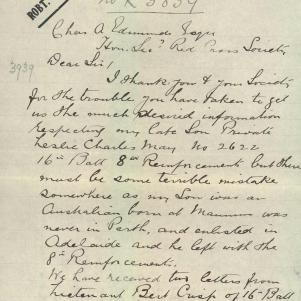 ROBT.
No K 3939
Chas A Edmunds Esqre
Hon. Secy Red Cross Society
3939
Dear Sir!
I thank you & your Society
for the trouble you have taken to get
us the much desired information
respecting my late Son Private
Leslie Charles May No 2622
16th Batt 8th Reinforcement but there
must be some terrible mistake
somewhere as my Son was an
Australian born at Mannum was
never in Perth, and enlisted in
Adelaide and he left with the
8th Reinforcement.
We have received two letters from
Lieutenant Bert Crisp of 16th Batt